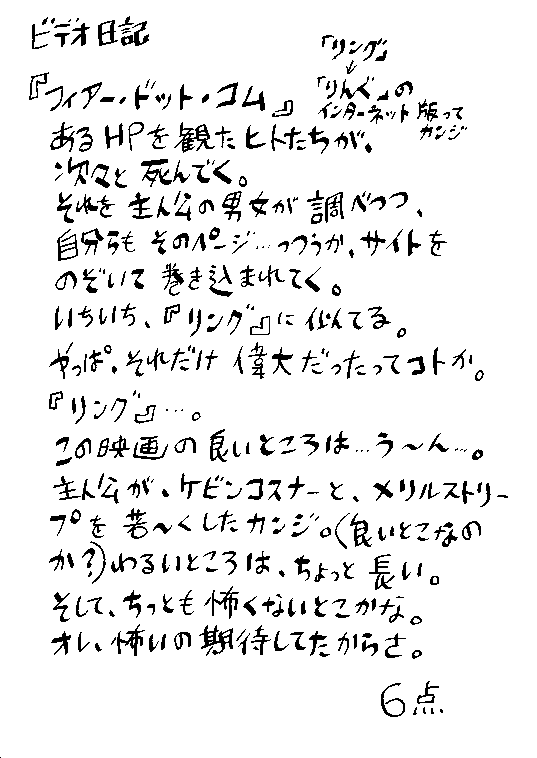 ビデオ日記
「リング」
↓
『フィアー・ドット・コム』
「りんぐ」の
インターネット版って
カンジ
あるHPを観たヒトたちが、
次々と死んでく。
それを主人公の男女が調べつつ、
自分らもそのページ…っつうか、サイトを
のぞいて巻き込まれてく。
いちいち、『リング』に似てる。
やっぱ、それだけ偉大だったってコトか。
『リング』…。
この映画の良いところは…う～ん…。
主人公が、ケビンコスナーと、メリルストリー
プを若～くしたカンジ。（良いとこなの
か？）わるいところは、ちょっと長い。
そして、ちっとも怖くないとこかな。
オレ、怖いの期待してたからさ。
6点